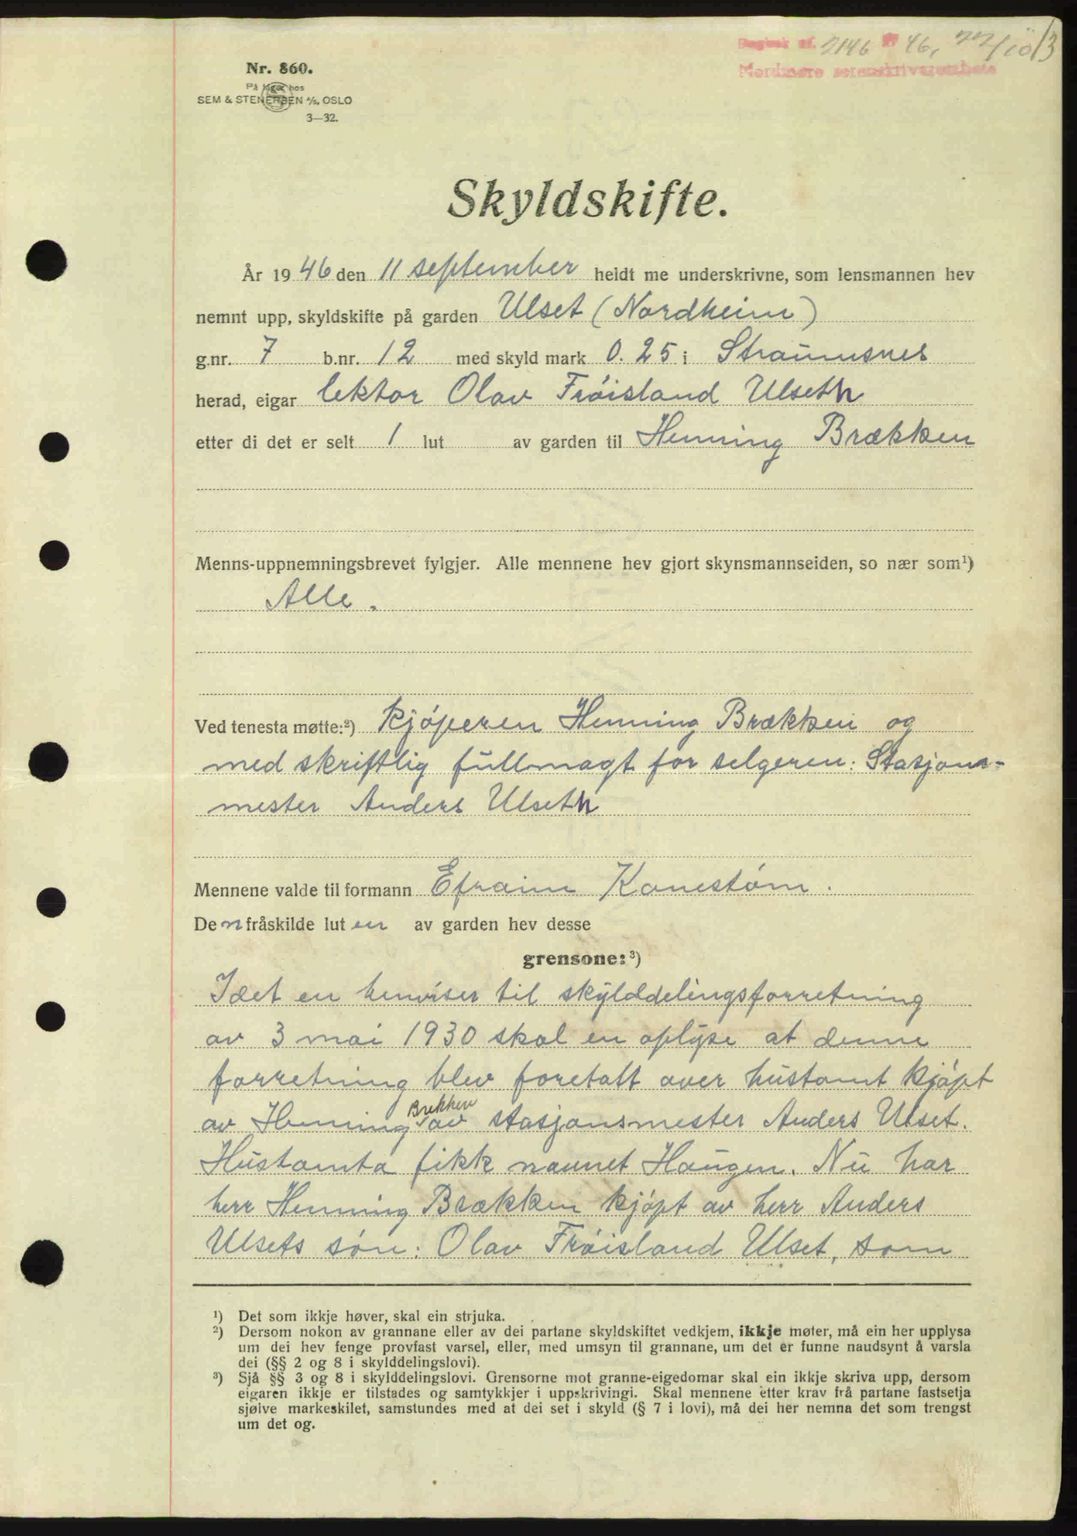 Dagbok nr. 2146 19 46, 22/10 13
Nordmøre sorenskriverembete
Nr. 860.
På lager hos
SEM & STENERSEN A/S, OSLO
3—32.
Skyldskifte.
År 19 46 den 11 september heldt me underskrivne, som lensmannen hev
nemnt upp, skyldskifte på garden Ulset (Nordheim)
g.nr. 7 b.nr. 12 med skyld mark 0.25 i Straumsnes
herad, eigar lektor Olav Frøisland Ulseth
etter di det er selt 1 lut av garden til Henning Brækken
Menns-uppnemningsbrevet fylgjer. Alle mennene hev gjort skynsmannseiden, so nær som¹)
Alle.
Ved tenesta møtte:²) kjøperen Henning Brækken og
med skriftlig fullmagt for selgeren: Stasjons-
mester Anders Ulseth
Mennene valde til formann Efraim Kanestøm.
De n fråskilde lut en av garden hev desse
grensone:³)
Idet en henviser til skylddelingsforretning
av 3 mai 1930 skal en oplyse at denne
forretning blev foretatt over hustomt kjøpt
av Henning Brekken av stasjonsmester Anders Ulset.
Hustomta fikk navnet Haugen. Nu har
herr Henning Brækken kjøpt av herr Anders
Ulsets søn: Olav Frøisland Ulset, som
¹) Det som ikkje høver, skal ein strjuka.
²) Dersom nokon av grannane eller av dei partane skyldskiftet vedkjem, ikkje møter, må ein her upplysa
um dei hev fenge provfast varsel, eller, med umsyn til grannane, um det er funne naudsynt å varsla
dei (§§ 2 og 8 i skylddelingslovi).
³) Sjå §§ 3 og 8 i skylddelingslovi. Grensorne mot granne-eigedomar skal ein ikkje skriva upp, dersom
eigaren ikkje er tilstades og samtykkjer i uppskrivingi. Skal mennene etter krav frå partane fastsetja
sjølve markeskilet, samstundes med at dei set i skyld (§ 7 i lovi), må dei her nemna det som trengst
um det og.